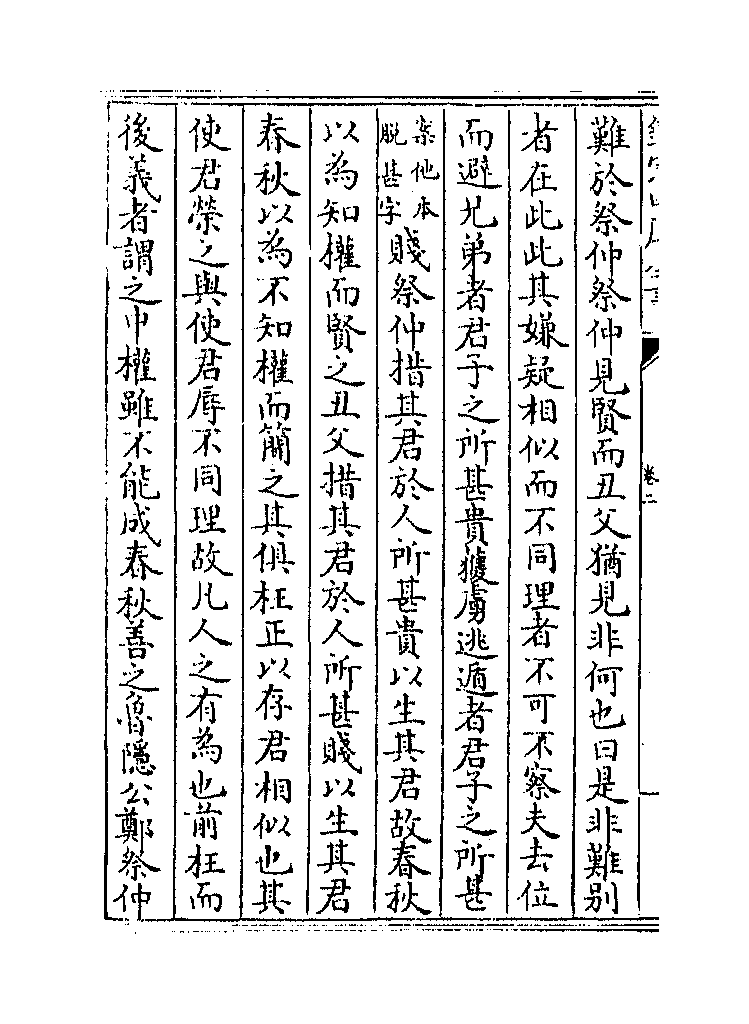 難於祭仲祭仲見賢而丑父猶見非何也曰是非難别
者在此此其嫌疑相似而不同理者不可不察夫去位
而避兄弟者君子之所甚貴獲虜逃遁者君子之所甚
案他本脱甚字賤祭仲措其君於人所甚貴以生其君故春秋
以為知權而賢之丑父措其君於人所甚賤以生其君
春秋以為不知權而簡之其俱枉正以存君相似也其
使君榮之與使君辱不同理故凡人之有為也前枉而
後義者謂之中權雖不能成春秋善之魯隠公鄭祭仲
卷二